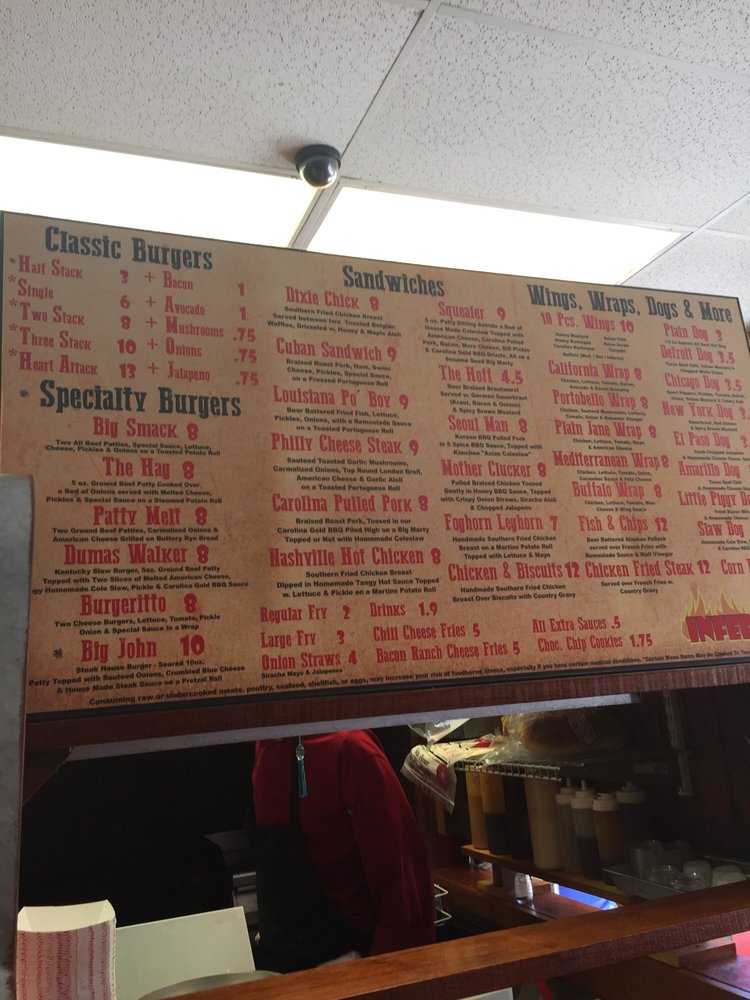 Classic Burgers
*Half Stack 3 + Bacon 1
*Single 6 + Avocado 1
*Two Stack 8 + Mushrooms .75
*Three Stack 10 + Onions .75
*Heart Attack 13 + Jalapeno .75
* Specialty Burgers
Big Smack 8
Two All Beef Patties, Special Sauce, Lettuce,
Cheese, Pickles & Onions on a Toasted Potato Roll
The Hag 8
5 oz. Ground Beef Patty Cooked Over
a Bed of Onions served with Melted Cheese,
Pickles & Special Sauce on a Steamed Potato Roll
Patty Melt 8
Two Ground Beef Patties, Carmalized Onions &
American Cheese Grilled on Buttery Rye Bread
Dumas Walker 8
Kentucky Slaw Burger, 5oz. Ground Beef Patty
Topped with Two Slices of Melted American Cheese,
Homemade Cole Slaw, Pickle & Carolina Gold BBQ Sauce
Burgeritto 8
Two Cheese Burgers, Lettuce, Tomato, Pickle
Onion & Special Sauce in a Wrap
* Big John 10
Steak House Burger - Seared 10oz.
Patty Topped with Sauteed Onions, Crumbled Blue Cheese
& House Made Steak Sauce on a Pretzel Roll
Sandwiches
Dixie Chick 8
Southern Fried Chicken Breast
Served between two, Toasted Belgian
Waffles, Drizzeled w. Honey & Maple Aioli
Cuban Sandwich 9
Braised Roast Pork, Ham, Swiss
Cheese, Pickles, Special Sauce,
on a Pressed Portuguese Roll
Louisiana Po' Boy 9
Beer Battered Fried Fish, Lettuce,
Pickles, Onions, with a Remoulade Sauce
on a Toasted Portuguese Roll
Philly Cheese Steak 9
Sauteed Toasted Garlic Mushrooms,
Carmalized Onions, Top Round London Broil,
American Cheese & Garlic Aioli
on a Toasted Portuguese Roll
Carolina Pulled Pork 8
Braised Roast Pork, Tossed in our
Carolina Gold BBQ Piled High on a Big Marty
Topped or Not with Homemade Coleslaw
Nashville Hot Chicken 8
Southern Fried Chicken Breast
Dipped in Homemade Tangy Hot Sauce Topped
w. Lettuce & Pickle on a Martins Potato Roll
Squealer 9
5 oz. Patty Sitting Astride a Bed of
House Made Coleslaw Topped with
American Cheese, Carolina Pulled
Pork, Bacon, More Cheese, Dill Pickle
& Carolina Gold BBQ Drizzle, All on a
Sesame Seed Big Marty
The Hoff 4.5
Beer Braised Bratwurst
Served w. German Sauerkraut
(Kraut, Bacon & Onion)
& Spicy Brown Mustard
Seoul Man 8
Korean BBQ Pulled Pork
in 5 Spice BBQ Sauce, Topped with
Kimchee "Asian Coleslaw"
Mother Clucker 8
Pulled Braised Chicken Tossed
Gently in Honey BBQ Sauce, Topped
with Crispy Onion Straws, Siracha Aioli
& Chopped Jalapano
Foghorn Leghorn 7
Handmade Southern Fried Chicken
Breast on a Martins Potato Roll
Topped with Lettuce & Mayo
Chicken & Biscuits 12
Handmade Southern Fried Chicken
Breast Over Biscuits with Country Gravy
Wings, Wraps, Dogs & More
10 Pcs. Wings 10
Honey Mustard Asian Chili
Honey Barbeque
Carolina Barbeque Teriyaki
Buffalo
California Wrap 8
Chicken, Lettuce, Tomato, Bacon,
Avocado & Ranch Dressing
Portobello Wrap 8
Plain Jane Wrap 8
Chicken, Lettuce, Tomato, Mayo
& American Cheese
Mediterranean Wrap 8
Chicken, Lettuce, Tomato, Onion,
Cucumber Sauce & Feta Cheese
Buffalo Wrap 8
Chicken, Lettuce, Tomato, Blue
Cheese & Wing Sauce
Fish & Chips 12
Beer Battered Alaskan Pollock
served over French Fries with
Remoulade Sauce & Malt Vinegar
Chicken Fried Steak 12
Served over French Fries w.
Country Gravy
Plain Dog 3
Detroit Dog 3.5
Chicago Dog 3.5
New York Dog
El Paso Dog
Amarillo Dog
Little Piggy
Slaw Dog
Corn
Regular Fry 2 Drinks 1.9
Large Fry 3 Chili Cheese Fries 5
Onion Straws 4 Bacon Ranch Cheese Fries 5
Siracha Mayo & Jalapenos
All Extra Sauces .5
Choc. Chip Cookies 1.75
INFE
Consuming raw or undercooked meats, poultry, seafood, shellfish, or eggs, may increase your risk of foodborne illness, especially if you have certain medical conditions. *Certain Menu Items May Be Cooked To